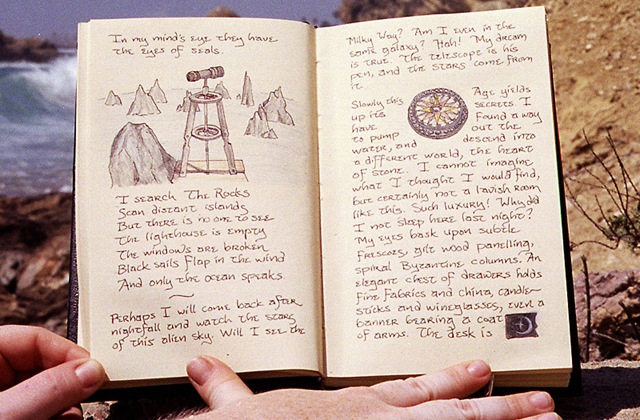 In my mind's eye they have
the eyes of seals.
I search The Rocks
Scan distant islands
But there is no one to see
The lighthouse is empty
The windows are broken
Black sails flap in the wind
And only the ocean speaks
Perhaps I will come back after
nightfall and watch the stars
of this alien sky. Will I see the
Milky Way? Am I even in the
same galaxy? Hah! My dream
is true. The telescope is his
pen, and the stars come from
it.
Slowly this Age yields
up its secrets. I
have found a way
to pump out the
water, and descend into
a different world, the heart
of stone. I cannot imagine
what I thought I would find,
but certainly not a lavish room
like this. Such luxury! Why did
I not sleep here last night?
My eyes bask upon subtle
frescoes, gilt wood panelling,
spiral Byzantine columns. An
elegant chest of drawers holds
fine fabrics and china, candle-
sticks and wineglasses, even a
banner bearing a coat
of arms. The desk is